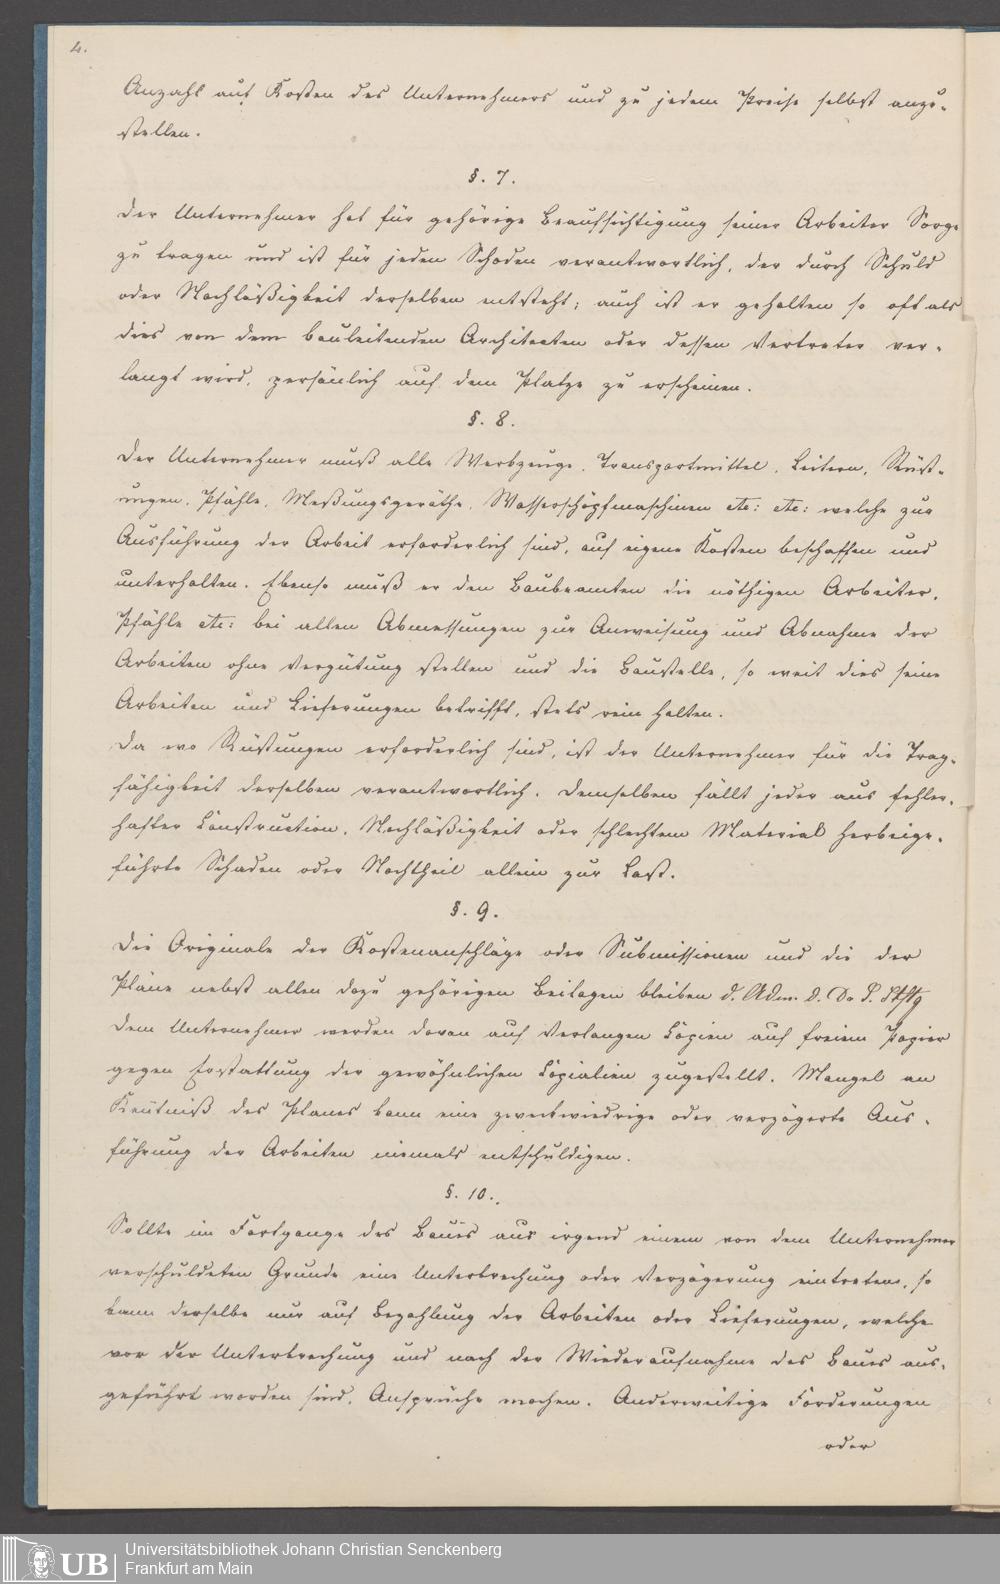 4.
Anzahl auf Kosten des Unternehmers und zu jedem Preise selbst anzu-
stellen.
§. 7.
Der Unternehmer hat für gehörige Beaufsichtigung seiner Arbeiter Sorge
zu tragen und ist für jeden Schaden verantwortlich, der durch Schuld
oder Nachläßigkeit derselben entsteht; auch ist er gehalten so oft als
dies von dem bauleitenden Architecten oder dessen Vertreter ver-
langt wird, persönlich auf dem Platze zu erscheinen.
§. 8.
Der Unternehmer muß alle Werkzeuge, Transportmittel, Leitern, Rüst-
ungen, Pfähle, Meßungsgeräthe, Wasserschöpfmaschinen etc: etc: welche zur
Ausführung der Arbeit erforderlich sind, auf eigene Kosten beschaffen und
unterhalten. Ebenso muß er den Baubeamten die nöthigen Arbeiter,
Pfähle etc: bei allen Abmessungen zur Anweisung und Abnahme der
Arbeiten ohne Vergütung stellen und die Baustelle, so weit dies seine
Arbeiten und Lieferungen betrifft, stets rein halten.
Da wo Rüstungen erforderlich sind, ist der Unternehmer für die Trag-
fähigkeit derselben verantwortlich. Demselben fällt jeder aus fehler-
hafter Construction, Nachläßigkeit oder schlechtem Material herbeige-
führte Schaden oder Nachtheil allein zur Last.
§. 9.
Die Originale der Kostenanschläge oder Submissionen und die der
Pläne nebst allen dazu gehörigen Beilagen bleiben d. Adm. d. Dr
Dem Unternehmer werden davon auf Verlangen Copien auf freiem Papier
gegen Erstattung der gewöhnlichen Copialien zugestellt. Mangel an
Kentniß des Planes kann eine zweckwiedrige oder verzögerte Aus-
führung der Arbeiten niemals entschuldigen.
§. 10.
Sollte im Fortgange des Baues aus irgend einem von dem Unternehmer
verschuldeten Grunde eine Unterbrechung oder Verzögerung eintreten, so
kann derselbe nur auf Bezahlung der Arbeiten oder Lieferungen, welche
vor der Unterbrechung und nach der Wiederaufnahme des Baues aus-
geführt worden sind, Ansprüche machen. Anderweitige Forderungen
oder
UB
Universitätsbibliothek Johann Christian Senckenberg
Frankfurt am Main